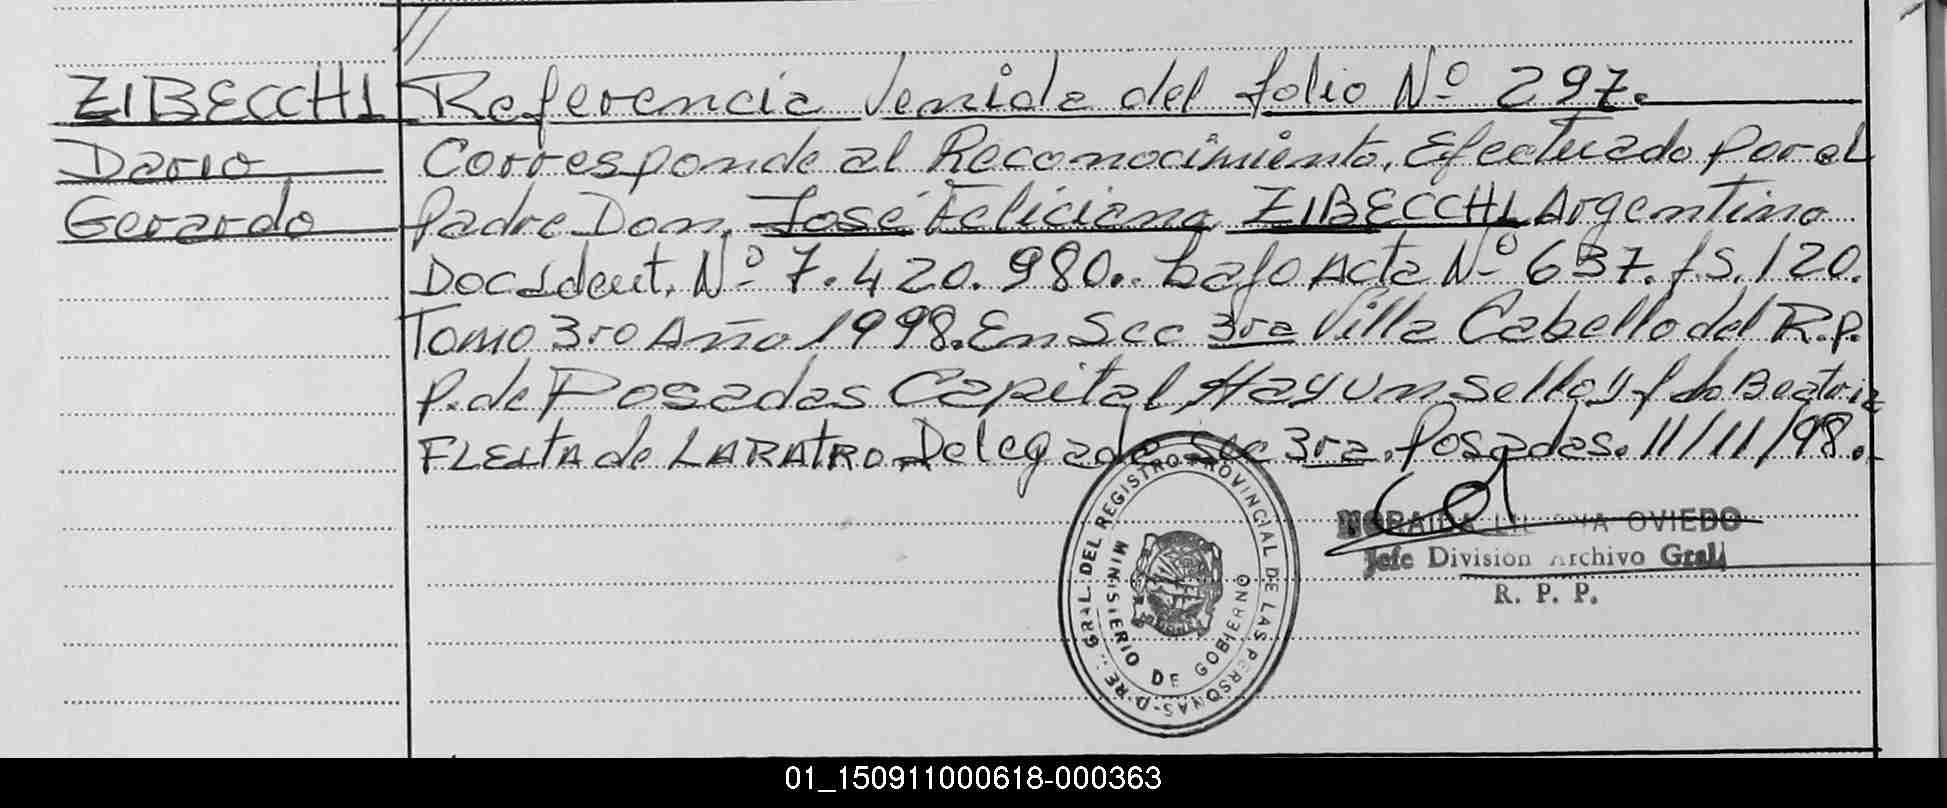 ZIBECCHI Referencia Venida del folio Nº 297.
Dario Corresponde al Reconocimiento, Efectuado Por el
Gerardo Padre Don, José Feliciano ZIBECCHI Argentino
Doc Ident. Nº 7.420.980.. bajo Acta Nº 637. fs. 120.
Tomo 3ro Año 1998. En Secc 3ra Villa Cabello del R.P.
P. de Posadas Capital, Hay un sello y fdo Beatriz
FLEITA de LARATRO, Delegada Secc 3ra. Posadas. 11/11/98.
GRAL. DEL REGISTRO PROVINCIAL DE LAS PERSONAS
MINISTERIO DE GOBIERNO
OVIEDO
Jefe División Archivo Gral
R. P. P.
01_150911000618-000363